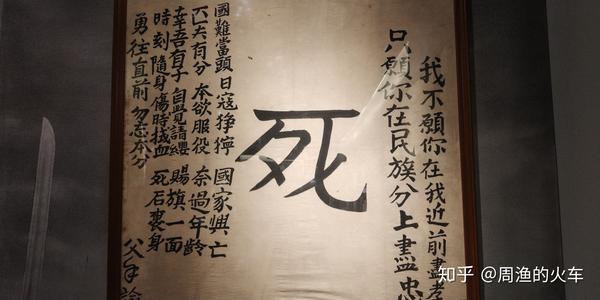 我不願你在我近前盡孝
只願你在民族分上盡忠
死
國難當頭 日寇猙獰 國家興亡
匹夫有分 本欲服役 奈過年齡
幸吾有子 自覺請纓 賜旗一面
時刻隨身 傷時拭血 死后裹身
勇往直前 勿忘本分
父手諭
知乎 @周渔的火车